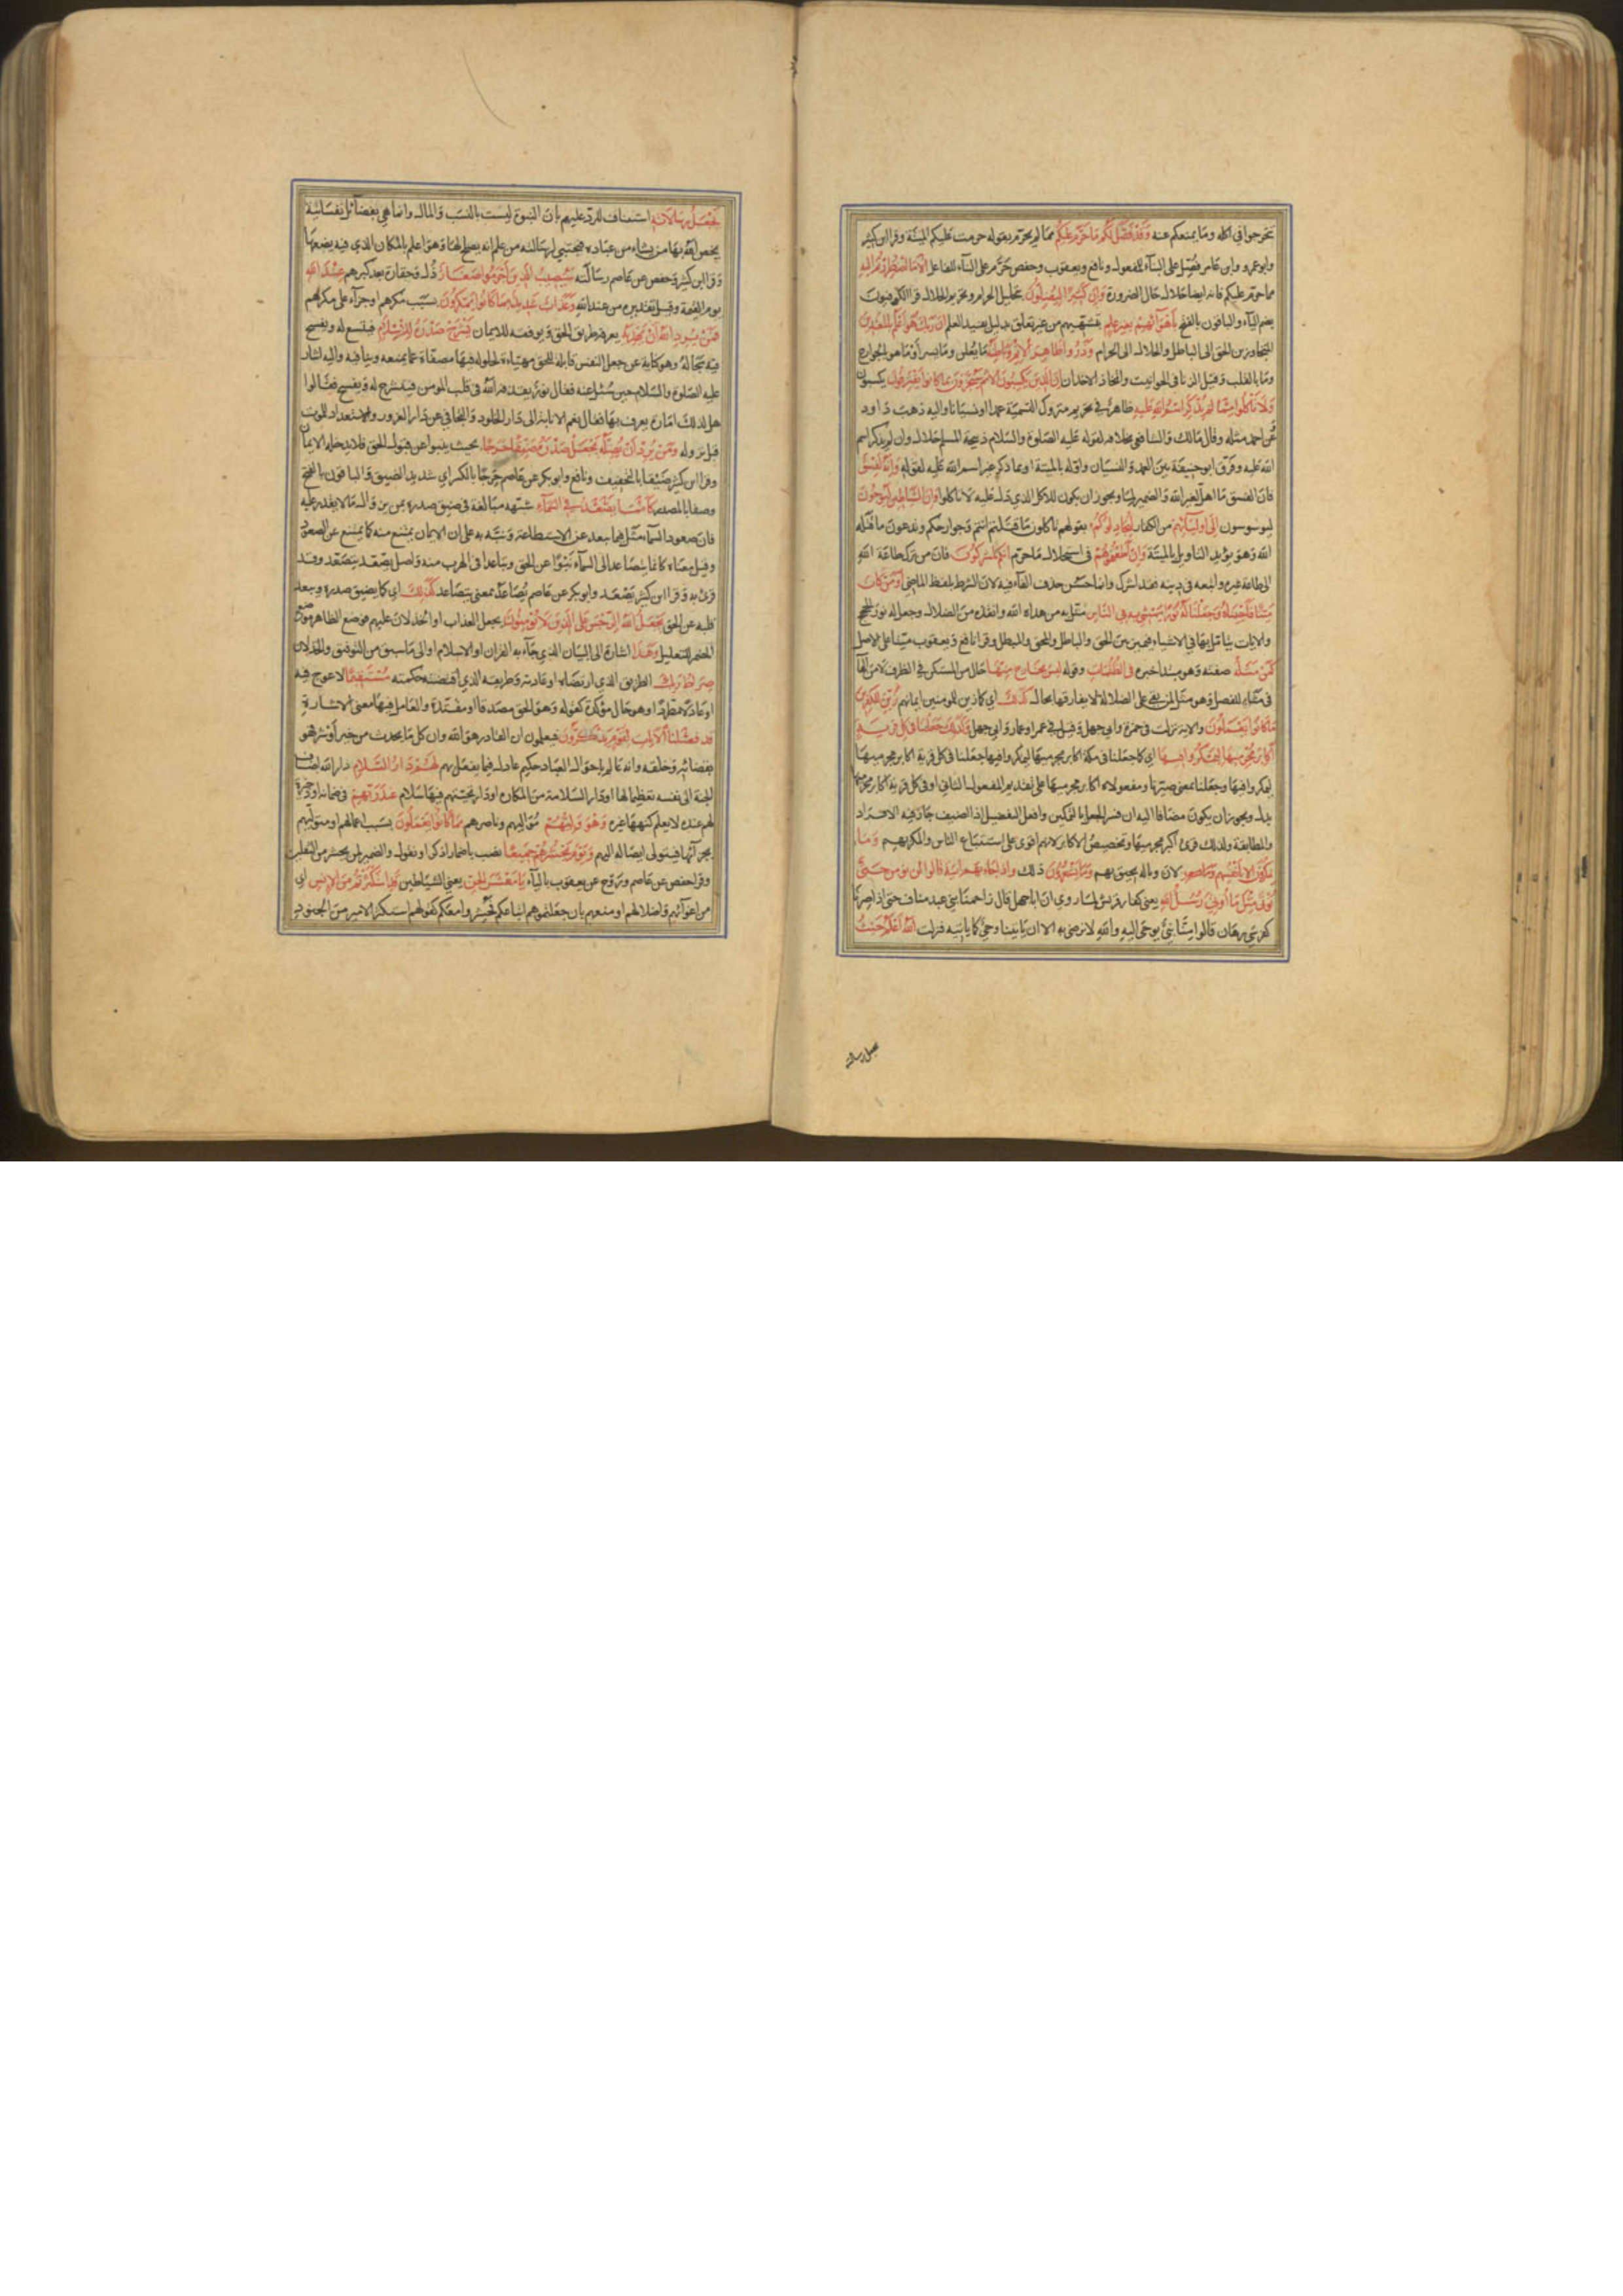 تحرجوا في اكله وما يمنعكم عنه وقد فصل لكم ما حرم عليكم مما لم يحرم بقوله حرمت عليكم الميتة وقرا ابن كثير
وابو عمرو وابن عامر فصل على البناء للمفعول ونافع ويعقوب وحفص حرم على البناء للفاعل الا ما اضطررتم اليه
مما حرم عليكم فانه ايضا حلال حال الضرورة وان كثيرا ليضلون بتحليل الحرام وتحريم الحلال قرا الكوفيون
بضم الياء والباقون بالفتح باهوائهم بغير علم بتشهيهم من غير تعلق بدليل يفيد العلم ان ربك هو اعلم بالمعتدين
المتجاوزين الحق الى الباطل والحلال الى الحرام وذروا ظاهر الاثم وباطنه ما يعلن وما يسر او ما هو بالجوارح
وما بالقلب وقيل الزنا في الحوانيت واتخاذ الاخدان ان الذين يكسبون الاثم سيجزون بما كانوا يقترفون يكسبون
ولا تاكلوا مما لم يذكر اسم الله عليه ظاهر في تحريم متروك التسمية عمدا او نسيانا واليه ذهب داود
وعن احمد مثله وقال مالك والشافعي بخلافه لقوله عليه الصلوة والسلام ذبيحة المسلم حلال وان لم يذكر اسم
الله عليه وفرق ابو حنيفة بين العمد والنسيان واوله بالميتة او بما ذكر غير اسم الله عليه لقوله وانه لفسق
فان الفسق ما اهل لغير الله والضمير لما ويجوز ان يكون للاكل الذي دل عليه لا تاكلوا وان الشياطين ليوحون
ليوسوسون الى اوليائهم من الكفار ليجادلوكم بقولهم تاكلون ما قتلتم انتم وجوارحكم وتدعون ما قتله
الله وهو يؤيد التاويل بالميتة وان اطعتموهم في استحلال ما حرم انكم لمشركون فان من ترك طاعة الله
الى طاعة غيره واتبعه في دينه فقد اشرك وانما حسن حذف الفاء فيه لان الشرط بلفظ الماضي اومن كان
ميتا فاحييناه وجعلنا له نورا يمشي به في الناس مثل به من هداه الله وانقذه من الضلال وجعل له نور الحجج
والايات يتامل بها في الاشياء فيميز بين الحق والباطل والمحق والمبطل وقرا نافع ويعقوب ميتا على الاصل
كمن مثله صفته وهو مبتدا خبره في الظلمات وقوله ليس بخارج منها حال من المستكن في الظرف لا من الهاء
في مثله للفصل وهو مثل لمن بقي على الضلالة لا يفارقها بحال كذلك اي كما زين للمومنين ايمانهم زين للكافرين
ما كانوا يعملون والاية نزلت في حمزة وابي جهل وقيل في عمر او عمار وابي جهل وكذلك جعلنا في كل قرية
اكابر مجرميها ليمكروا فيها اي كما جعلنا في مكة اكابر مجرميها ليمكروا فيها جعلنا في كل قرية اكابر مجرميها
ليمكروا فيها وجعلنا بمعنى صيرنا ومفعولاه اكابر مجرميها على تقديم المفعول الثاني او في كل قرية اكابر مجرميها
بدل ويجوز ان يكون مضافا اليه ان فسر الجعل بالتمكين وافعل التفضيل اذا اضيف جاز فيه الافراد
والمطابقة ولذلك قرئ اكبر مجرميها وتخصيص الاكابر لانهم اقوى على استتباع الناس والمكر بهم وما
يمكرون الا بانفسهم لان وباله يحيق بهم وما يشعرون ذلك واذا جاءتهم اية قالوا لن نومن حتى
نوتى مثل ما اوتي رسل الله يعني كفار قريش لما روي ان ابا جهل قال زاحمنا بني عبد مناف حتى اذا صرنا
كفرسي رهان قالوا منا نبي يوحى اليه والله لا نرضى به الا ان ياتينا وحي كما ياتيه فنزلت الله اعلم حيث
يجعل رسالاته
يجعل رسالاته استيناف للرد عليهم بان النبوة ليست بالنسب والمال وانما هي بفضائل نفسانية
يخص الله بها من يشاء من عباده فيجتبي لرسالته من علم انه يصلح لها وهو اعلم بالمكان الذي فيه يضعها
وقرا ابن كثير وحفص عن عاصم رسالته سيصيب الذين اجرموا صغار ذل وحقارة بعد كبرهم عند الله
يوم القيمة وقيل تقديره من عند الله وعذاب شديد بما كانوا يمكرون بسبب مكرهم او جزاء على مكرهم
فمن يرد الله ان يهديه يعرفه طريق الحق ويوفقه للايمان يشرح صدره للاسلام فيتسع له ويفسح
فيه مجاله وهو كناية عن جعل النفس قابلة للحق مهياة لحلوله فيها مصفاة عما يمنعه وينافيه واليه اشار
عليه الصلوة والسلام حين سئل عنه فقال نور يقذفه الله في قلب المومن فينشرح له ويفسح فقالوا
هل لذلك امارة يعرف بها فقال نعم الانابة الى دار الخلود والتجافي عن دار الغرور والاستعداد للموت
قبل نزوله ومن يرد ان يضله يجعل صدره ضيقا حرجا بحيث ينبو عن قبول الحق فلا يدخله الايمان
وقرا ابن كثير ضيقا بالتخفيف ونافع وابو بكر عن عاصم حرجا بالكسر اي شديد الضيق والباقون بالفتح
وصفا بالمصدر كانما يصعد في السماء شبهه مبالغة في ضيق صدره بمن يزاول ما لا يقدر عليه
فان صعود السماء مثل فيما يبعد عن الاستطاعة ونبه به على ان الايمان يمتنع منه كما يمتنع عن الصعود
وقيل معناه كانما يتصاعد الى السماء نبوا عن الحق وتباعدا في الهرب منه واصل يصعد يتصعد وقد
قرئ به وقرا ابن كثير يصعد وابو بكر عن عاصم يصاعد بمعنى يتصاعد كذلك اي كما يضيق صدره ويبعد
قلبه عن الحق يجعل الله الرجس على الذين لا يؤمنون يجعل العذاب او الخذلان عليهم فوضع الظاهر موضع
المضمر للتعليل وهذا اشارة الى البيان الذي جاء به القران او الاسلام او الى ما سبق من التوفيق والخذلان
صراط ربك الطريق الذي ارتضاه او عادته وطريقه الذي اقتضته حكمته مستقيما لا عوج فيه
او عادلا مطردا وهو حال مؤكدة كقوله وهو الحق مصدقا او مقيدة والعامل فيها معنى الاشارة
قد فصلنا الايات لقوم يذكرون فيعلمون ان القادر هو الله وان كل ما يحدث من خير او شر فهو
بقضائه وخلقه وانه عالم باحوال العباد حكيم عادل فيما يفعل بهم لهم دار السلام دار الله اضاف
الجنة الى نفسه تعظيما لها او دار السلامة من المكاره او دار تحيتهم فيها سلام عند ربهم في ضمانه او ذخيرة
لهم عنده لا يعلم كنهها غيره وهو وليهم مواليهم وناصرهم بما كانوا يعملون بسبب اعمالهم او متوليهم
بجزائها فيتولى ايصاله اليهم ويوم نحشرهم جميعا نصب باضمار اذكر او نقول والضمير لمن يحشر من الثقلين
وقرا حفص عن عاصم وروح عن يعقوب بالياء يا معشر الجن يعني الشياطين قد استكثرتم من الانس اي
من اغوائهم واضلالهم او منهم بان جعلتموهم اتباعكم فحشروا معكم كقولهم استكثر الامير من الجنود